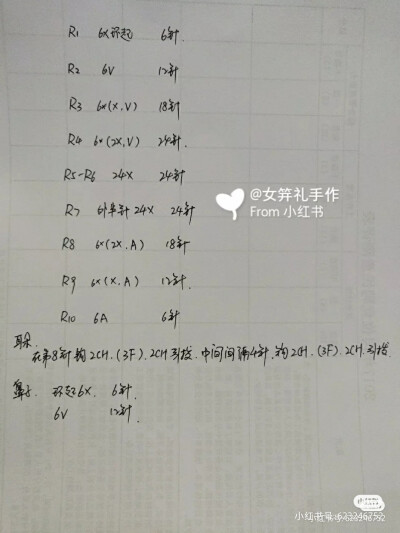 R1 6X环起 6针.
R2 6V 12针
R3 6×(X,V) 18针
R4 6×(2X,V) 24针.
R5-R6 24X 24针
R7 外半针 24X 24针
R8 6×(2X,A) 18针
R9 6×(X,A) 12针.
R10 6A 6针
@女笄礼手作
From 小红书
耳朵.
在第8针钩2CH.(3F).2CH引拔.中间间隔4针.钩2CH.(3F).2CH.引拔
鼻子. 环起6X. 6针.
6V 12针.
小红书号:623246752